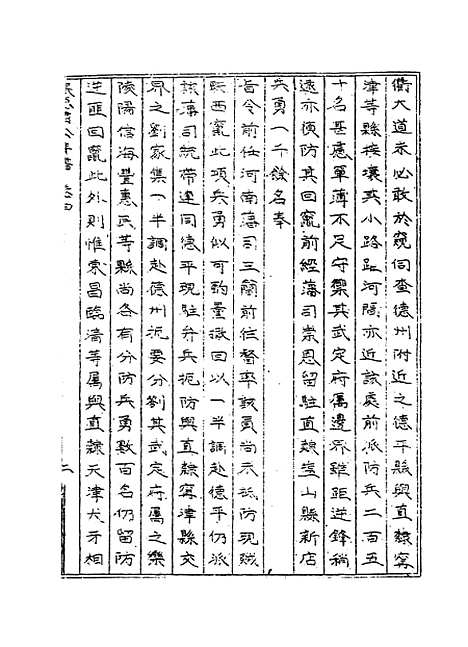 衝大道未必敢於窺伺查德州附近之德平縣與直隸甯
津等縣接壤其小路距河間亦近該處前派防兵二百五
十名甚慮單薄不足守禦其武定府屬邊界雖距逆鋒稍
遠亦須防其回竄前經藩司崇恩留駐直隸鹽山縣新店
兵勇一千餘名奉
旨令前任河南藩司王簡前往督率該員尚未抵防現賊
既西竄此項兵勇似可酌量撤回以一半調赴德平仍派
該藩司統帶連同德平現駐弁兵扼防與直隸甯津縣交
界之劉家集一半調赴德州扼要分劄其武定府屬之樂
陵陽信海豐惠民等縣尚各有分防兵勇數百名仍留防
逆匪回竄此外則惟東昌臨清等屬與直隸天津犬牙相
卷四
二